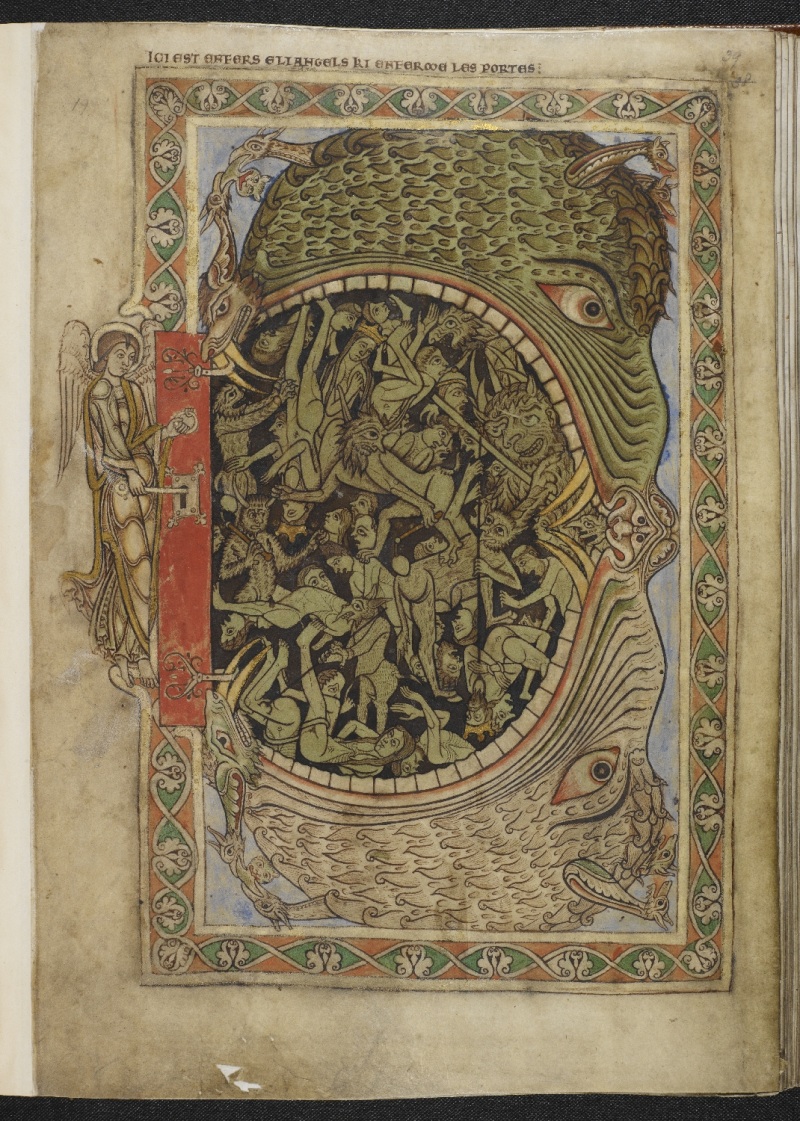 ICI EST ENFERS E LI ANGELS KI ENFERME LES PORTES
39